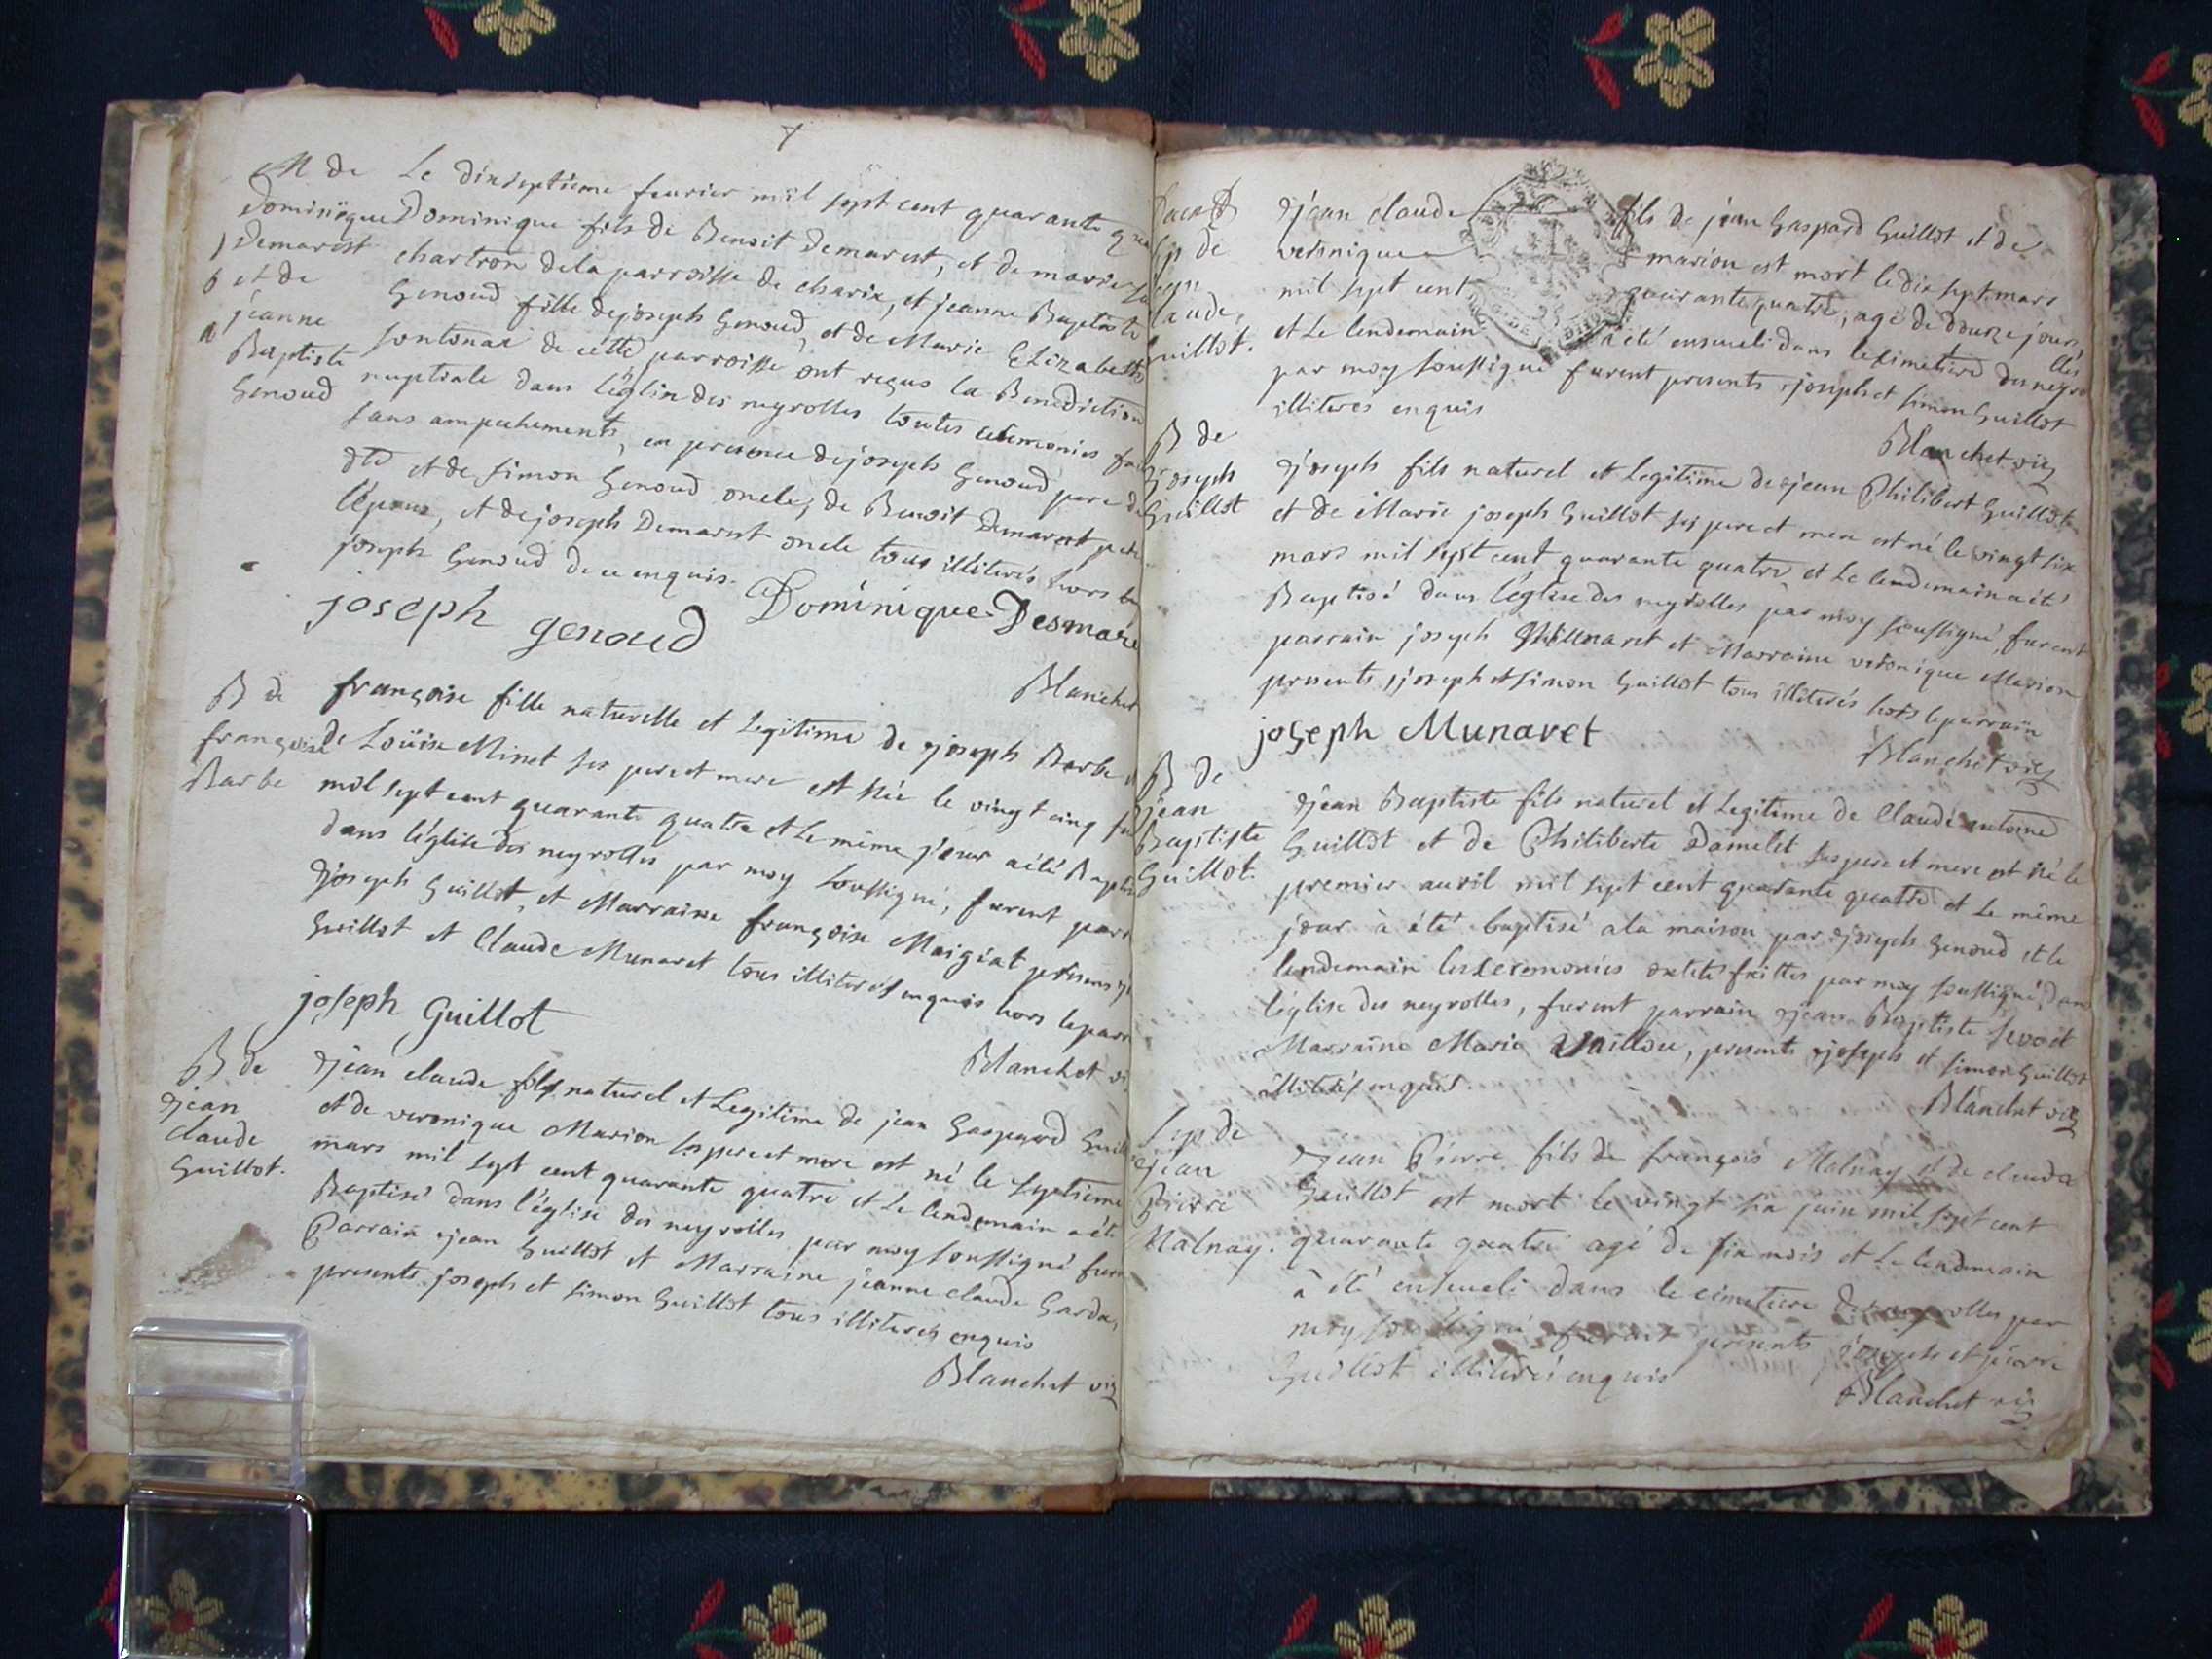 7
M de
Dominique
Demarest
et de
jeanne
Baptiste
Genoud
Le dixseptieme feurier mil sept cent quarante
Dominique fils de Benoit Demarest, et de marie
chartron dela parroisse de charix, et jeanne Baptiste
Genoud fille de joseph Genoud, et de Marie Elizabeth
fontanai de cette parroisse ont reçus la Benediction
nuptiale dans l'eglise des neyrolles toutes ceremonies
sans ampechements, en presence de joseph Genoud pere de
dte et de simon Genoud oncle, de Benoit Demarest pere
l'epoux, et de joseph Demarest oncle tous illiterés hors
joseph Genoud de ce enquis.
joseph genoud
Dominique Desmare
Blanchet
B de
françoise
Barbe
françoise fille naturelle et Legitime de joseph Barbe
de Loüise Minet ses pere et mere est née le vingt cinq
mil sept cent quarante quatre et Le même jour a été
dans l'église des neyrolles par moy soussigné, furent
joseph Guillot, et Marraine françoise Maigiat
Guillot et Claude Munaret tous illiterés enquis hors
joseph Guillot
Blanchet
B de
jean
claude
Guillot.
jean claude fils naturel et Legitime de jean Gaspard
et de veronique Marion ses pere et mere est né le septieme
mars mil sept cent quarante quatre et Le lendemain a été
Baptisé dans l'église des neyrolles par moy soussigné
Parrain jean Guillot et Marraine jeanne claude Garda,
presents joseph et simon Guillot tous illiterés enquis
Blanchet vic
de
laude,
Guillot.
jean claude fils de jean Gaspard Guillot et de
veronique marion est mort le dix sept mars
mil sept cent quarante quatre, agé de douze jours
et Le lendemain a été enseueli dans le cimetiere des neyrolles
par moy soussigné furent presents joseph et simon Guillot
illiterés enquis
Blanchet vic
B de
joseph
Guillot
joseph fils naturel et Legitime de jean Philibert Guillot
et de Marie joseph Guillot ses pere et mere est né le vingt six
mars mil sept cent quarante quatre et Le lendemain a été
Baptisé dans l'église des neyrolles par moy soussigné, furent
parrain joseph et Marraine veronique Marion
presents joseph et simon Guillot tous illiterés hors le parrain
joseph Munaret
Blanchet vic
B de
jean
Baptiste
Guillot.
jean Baptiste fils naturel et Legitime de Claude antoine
Guillot et de Philiberte Damelet ses pere et mere est né le
premier auril mil sept cent quarante quatre et Le même
jour à été baptisé a la maison par joseph Genoud et le
lendemain les ceremonies ont eté faittes par moy soussigné, dans
l'église des neyrolles, furent parrain jean Baptiste
Marraine Marie presents joseph et simon Guillot
illiterés enquis.
Blanchet vic
Sep de
jean
Pierre
Malnay.
jean Pierre fils de françois Malnay et de clauda
Guillot est mort le vingt six juin mil sept cent
quarante quatre agé de six mois et Le lendemain
à été enseueli dans le cimetiere des neyrolles par
moy soussigné furent presents joseph et pierre
Guillot illiterés enquis
Blanchet vic